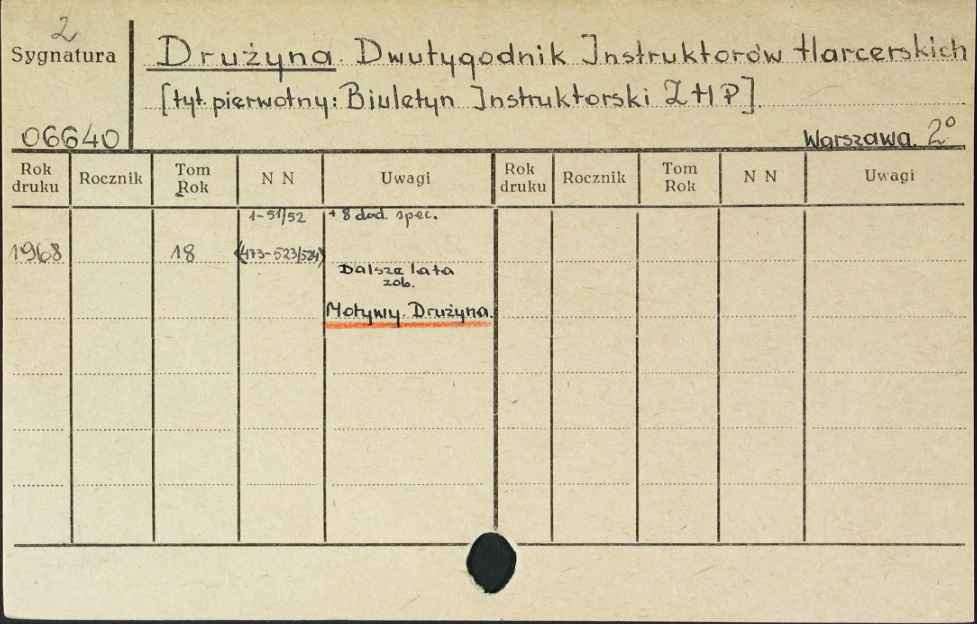 2
Sygnatura
Drużyna. Dwutygodnik Instruktorów Harcerskich
[tyt. pierwotny: Biuletyn Instruktorski ZHP].
06640
Warszawa. 2°
Rok druku Rocznik Tom Rok N N Uwagi Rok druku Rocznik Tom Rok N N Uwagi
1-51/52 + 8 dod. spec.
1968 18 (473-523/524)
Dalsze lata
zob.
Motywy. Drużyna.